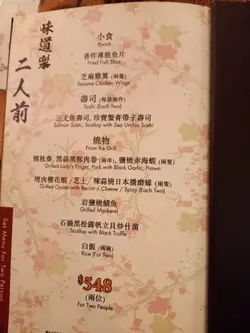 味道製
二人前
小食
Snack
香炸薄脆魚片
Fried Fish Slice
芝麻雞翼 (兩隻)
Sesame Chicken Wings
壽司 (每款兩件)
Sushi (Each Two)
三文魚壽司, 珍寶蟹膏帶子壽司
Salmon Sushi, Scallop with Sea Urchin Sushi
燒物
From the Grill
燒秋葵, 黑蒜黑豚肉卷 (兩串), 鹽燒赤海蝦 (兩隻)
Grilled Lady's Finger, Pork with Black Garlic, Prawn
Grilled Oyster with Bacon / Cheese / Spicy (Each Two)
岩鹽燒鯖魚
Grilled Mackerel
石鍋黑松露帆立貝炒什菌
Scallop with Black Truffle
白飯 (兩碗)
Rice (For Two)
$548
(兩位)
For Two People
Set Menu For Two Person